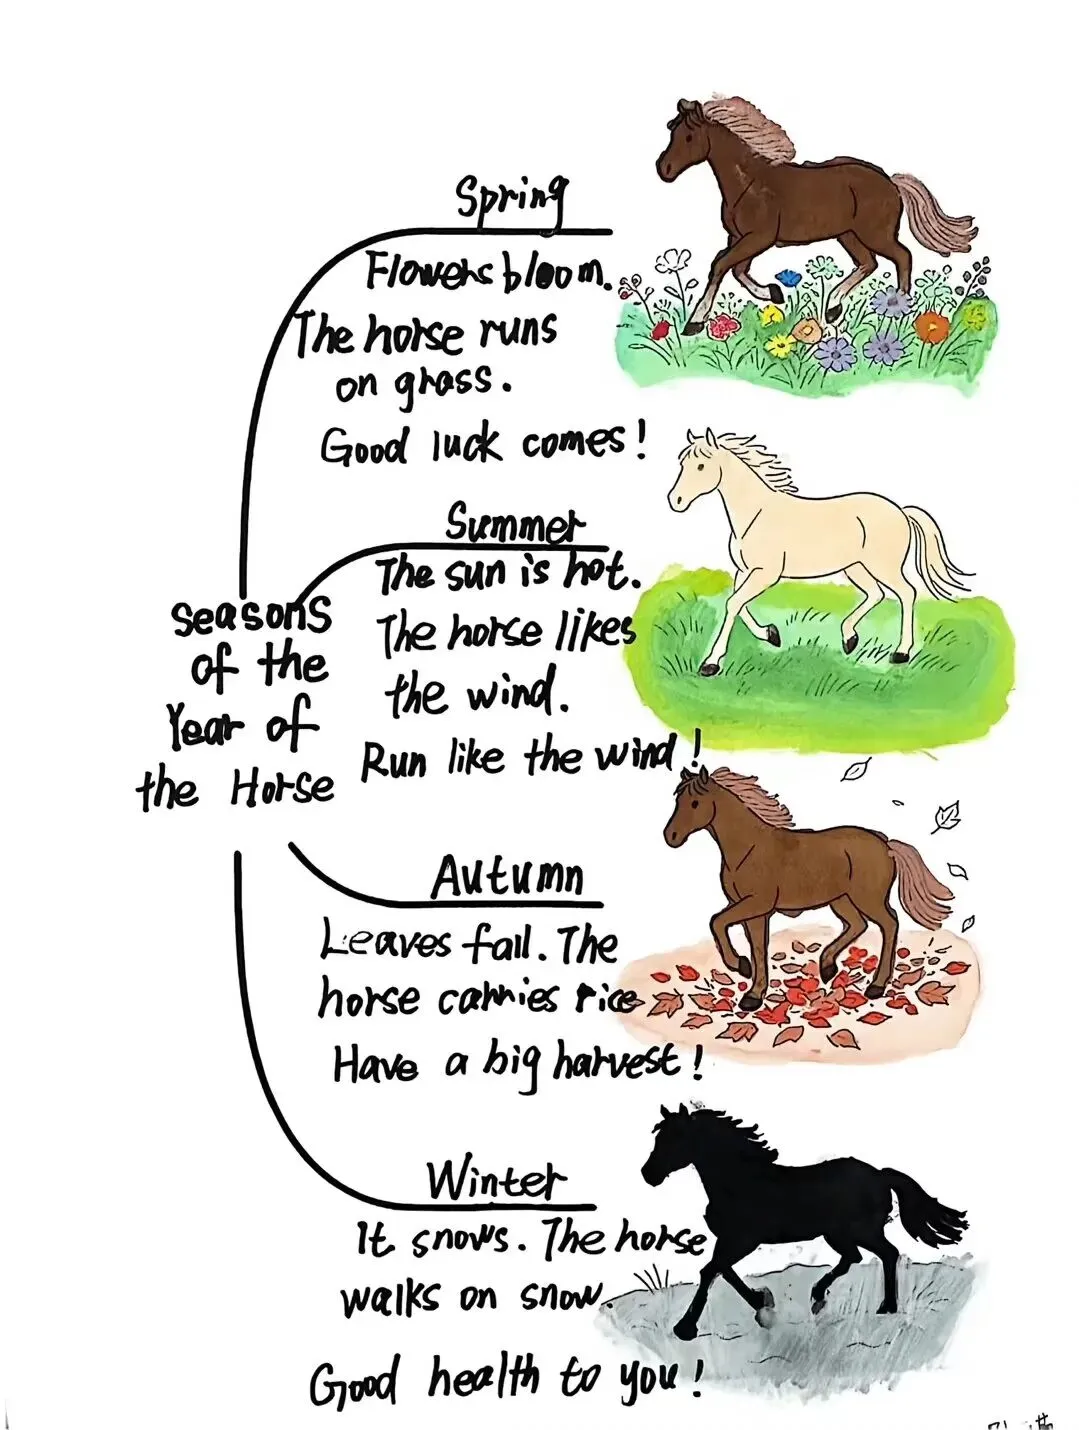 Spring
Flowers bloom.
The horse runs
on grass.
Good luck comes!
Summer
The sun is hot.
The horse likes
the wind.
Run like the wind!
seasons
of the
Year of
the Horse
Autumn
Leaves fall. The
horse carries rice
Have a big harvest!
Winter
It snows. The horse
walks on snow.
Good health to you!